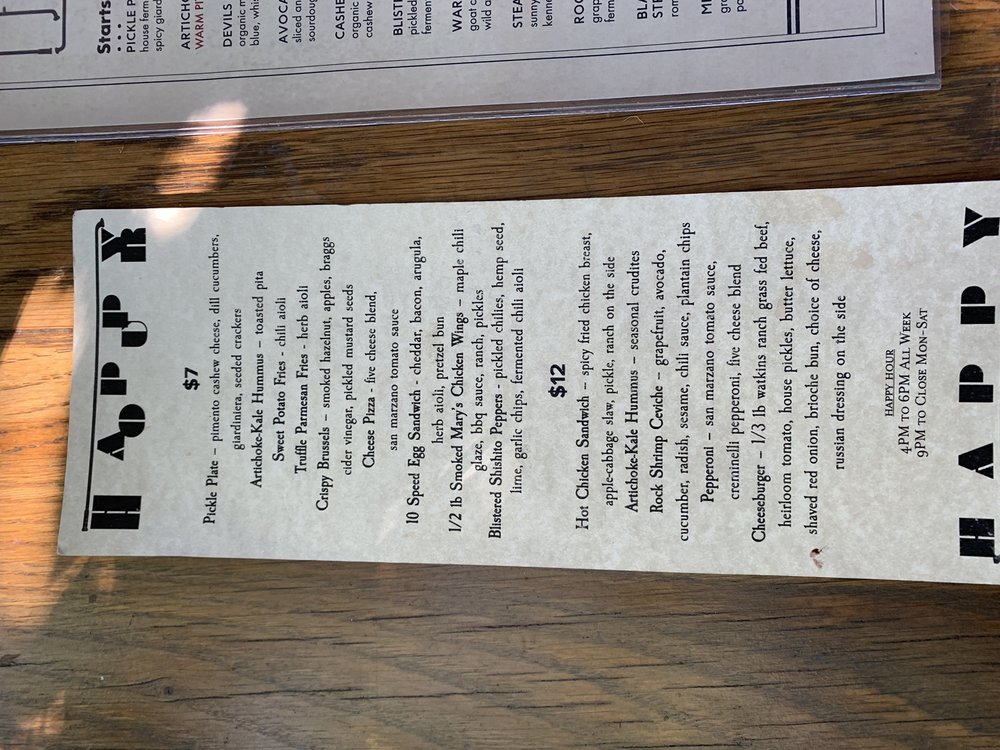 Starts
PICKLE P
house ferm
spicy giard
ARTICH
WARM PI
DEVILS
organic m
blue, whi
AVOCA
sliced on
sourdoug
CASHE
organic
cashew
BLIST
pickled
fermen
WAR
goat c
wild a
STEA
sunny
kenne
ROC
grap
ferm
BLA
STE
rom
MI
gr
po
HAPPY
$7
Pickle Plate – pimento cashew cheese, dill cucumbers,
giardiniera, seeded crackers
Artichoke-Kale Hummus – toasted pita
Sweet Potato Fries - chili aioli
Truffle Parmesan Fries - herb aioli
Crispy Brussels – smoked hazelnut, apples, braggs
cider vinegar, pickled mustard seeds
Cheese Pizza - five cheese blend,
san marzano tomato sauce
10 Speed Egg Sandwich - cheddar, bacon, arugula,
herb aioli, pretzel bun
1/2 lb Smoked Mary's Chicken Wings – maple chili
glaze, bbq sauce, ranch, pickles
Blistered Shishito Peppers - pickled chilies, hemp seed,
lime, garlic chips, fermented chili aioli
$12
Hot Chicken Sandwich – spicy fried chicken breast,
apple-cabbage slaw, pickle, ranch on the side
Artichoke-Kale Hummus – seasonal crudites
Rock Shrimp Ceviche – grapefruit, avocado,
cucumber, radish, sesame, chili sauce, plantain chips
Pepperoni – san marzano tomato sauce,
creminelli pepperoni, five cheese blend
Cheeseburger – 1/3 lb watkins ranch grass fed beef,
heirloom tomato, house pickles, butter lettuce,
shaved red onion, brioche bun, choice of cheese,
russian dressing on the side
HAPPY HOUR
4PM TO 6PM ALL WEEK
9PM TO CLOSE MON-SAT
HAPPY